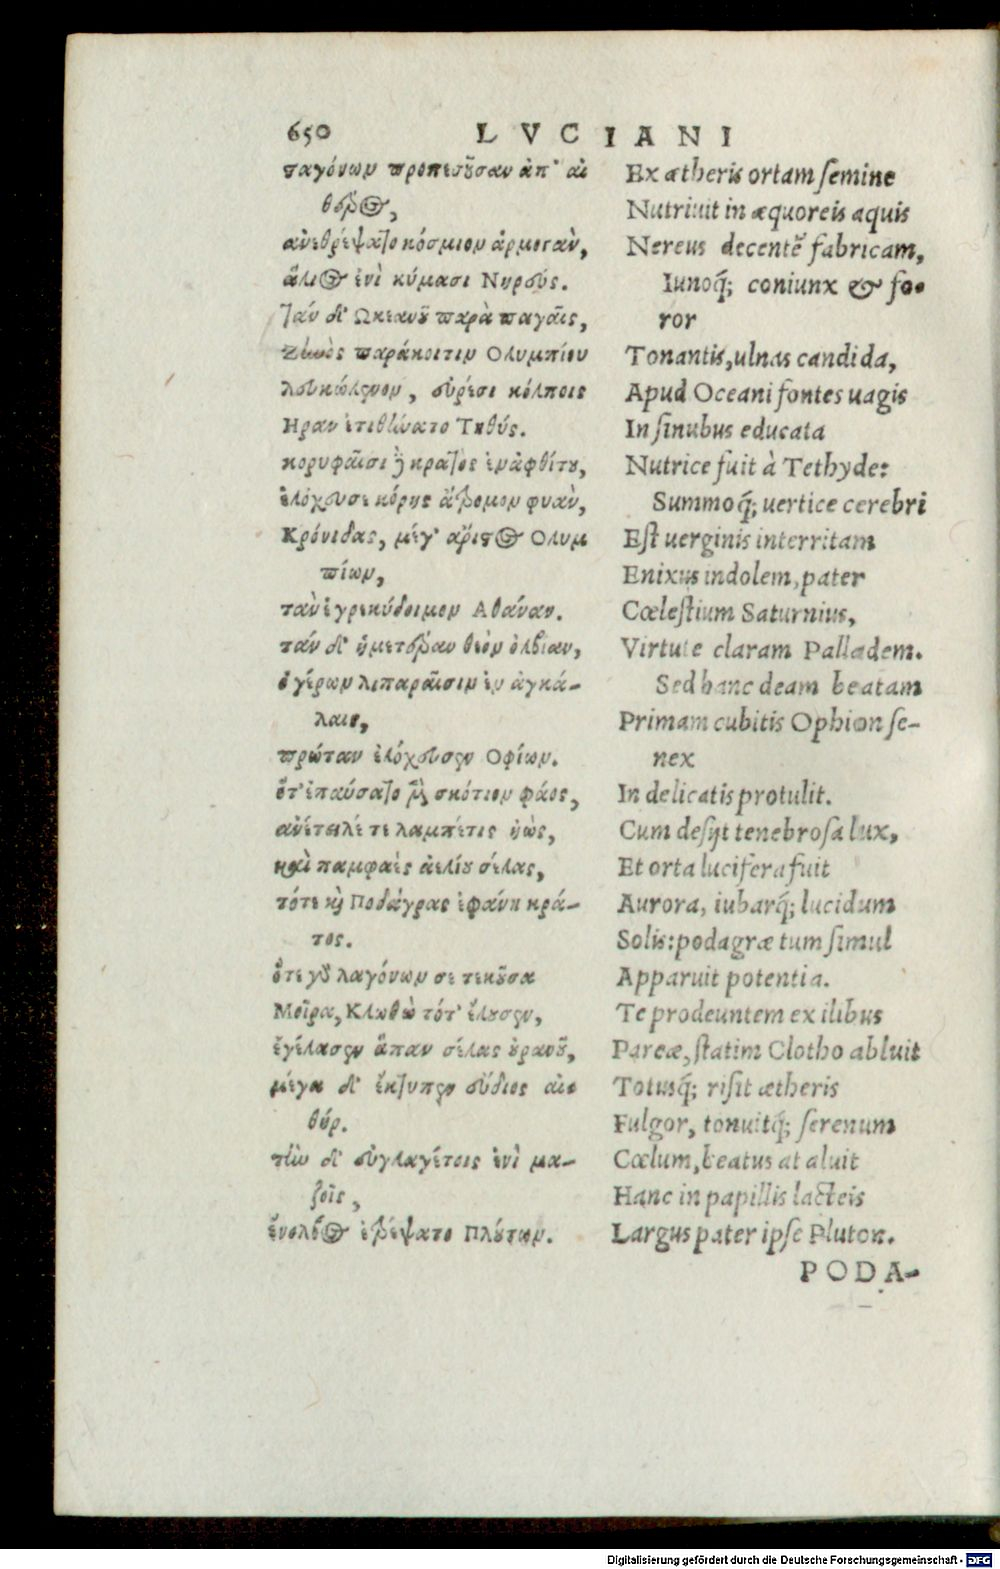 650 LVCIANI
ϛαγόνων προπεσοῦσαν ἀπ' αἰ
θέρος,
ἀνεθρέψατο κόσμιον ἁρμογὰν,
ἅλιος ἐνὶ κύμασι Νηρεύς.
Τὰν δ' Ὠκεανοῦ παρὰ παγαῖς,
Ζηνὸς παράκοιτιν Ολυμπίου
λευκώλενον, εὐρέσι κόλποις
Ηραν ἐτιθηνατο Τηθύς.
κορυφαῖσι δὲ κρατὸς ἐν ἀφθίτου,
ἐλόχευσε κόρης ἄτρομον φυὰν,
Κρόνιδας, μέγ' ἄριϛος Ολυμ
πίων,
τὰν ἐγρεκύδοιμον Αθάναν.
τάν δ' ἡμετέραν θεὸν ὀλβίαν,
ὁ γέρων λιπαραῖσιν ἐν ἀγκά-
λαις,
πρώταν ἐλόχευσεν Οφίων.
ὅτ' ἐπαύσατο μὲν σκότιον φάος,
ἀνέτειλέ τε λαμπέτις ἠὼς,
καὶ παμφαὲς ἀελίου σέλας,
τότε καὶ Ποδάγρας ἐφάνη κρά-
τος.
ὅτε γὰρ λαγόνων σε τεκοῦσα
Μοῖρα, Κλωθὼ τότ' ἔλουσεν,
ἐγέλασεν ἅπαν σέλας οὐρανοῦ,
μέγα δ' ἔκτυπεν εὔδιος αἰ-
θήρ.
τὴν δ' εὐγλαγέτοις ἐνὶ μα-
ζοῖς,
ἔνολβος ἐθρέψατο Πλούτων.
Ex ætheris ortam semine
Nutriuit in æquoreis aquis
Nereus decentẽ fabricam,
Iunoq́; coniunx & so-
ror
Tonantis, ulnas candida,
Apud Oceani fontes uagis
In sinubus educata
Nutrice fuit à Tethyde:
Summoq́; uertice cerebri
Est uerginis interritam
Enixus indolem, pater
Cœlestium Saturnius,
Virtute claram Palladem.
Sed hanc deam beatam
Primam cubitis Ophion se-
nex
In delicatis protulit.
Cum desijt tenebrosa lux,
Et orta lucifera fuit
Aurora, iubarq́; lucidum
Solis: podagræ tum simul
Apparuit potentia.
Te prodeuntem ex ilibus
Parcæ, statim Clotho abluit
Totusq́; risit ætheris
Fulgor, tonuitq́; serenum
Cœlum, beatus at aluit
Hanc in papillis lacteis
Largus pater ipse Pluton.
PODA-
Digitalisierung gefördert durch die Deutsche Forschungsgemeinschaft - DFG